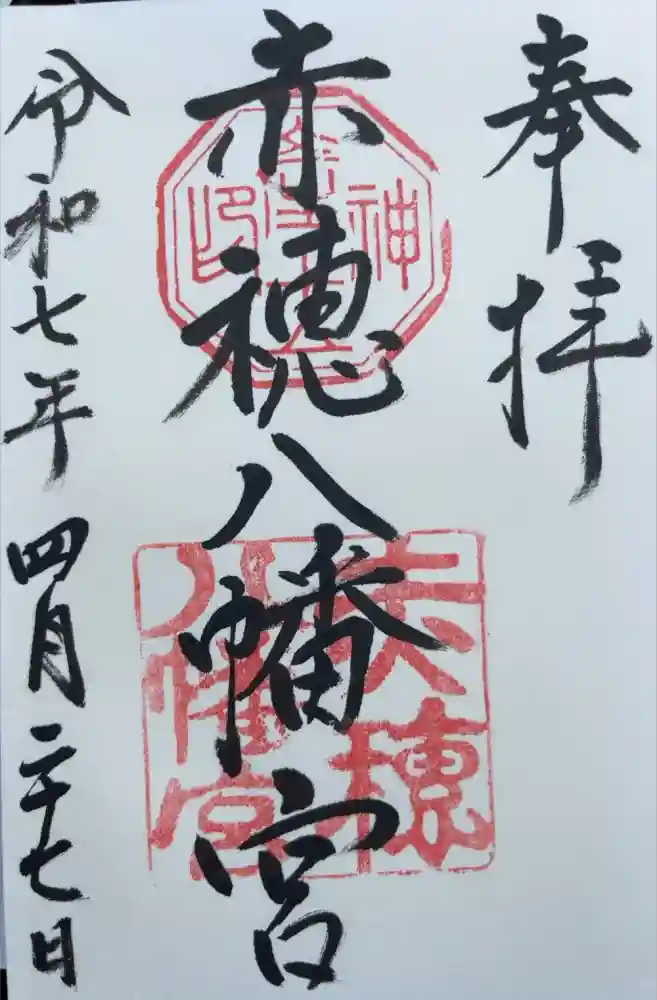 奉拝
赤穂八幡宮
令和七年四月二十七日
赤穂八幡宮